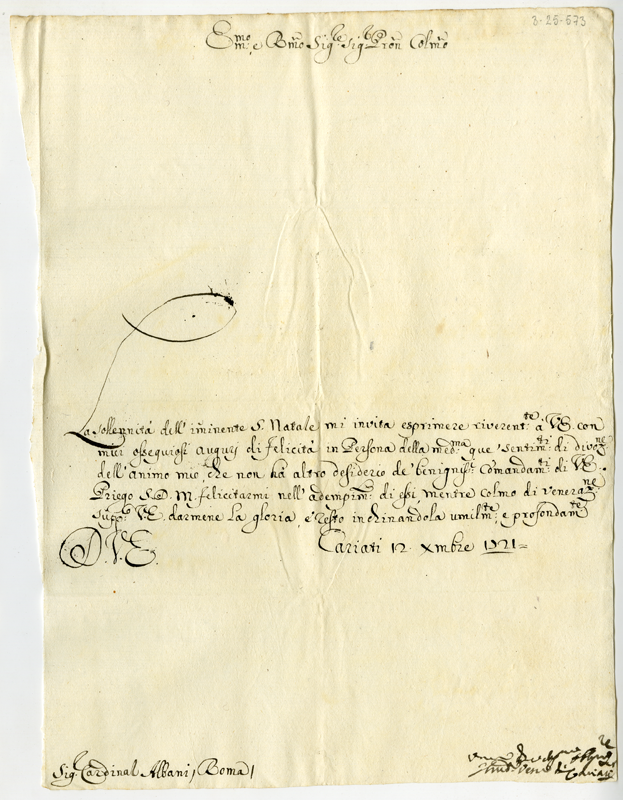 3-25-673
Emo e Rmo Sigre Sigre Pron Colmo
La sollennità dell'imminente S. Natale mi invita esprimere riverentte a VE. con
miei ossequiosi augurj di felicità in Persona della medma que sentimti di divozne
dell'animo mio, che non ha altro desiderio de benignissi comandamti di VE.
Priego S.D.M. felicitarmi nell'adempimto di essi, mentre colmo di venerazne
suppo VE. darmene la gloria, e resto inchinandola umilmte, e profondamte
D.V.E.
Cariati 12. Xmbre 1721=
Sigr Cardinal Albani / Roma /